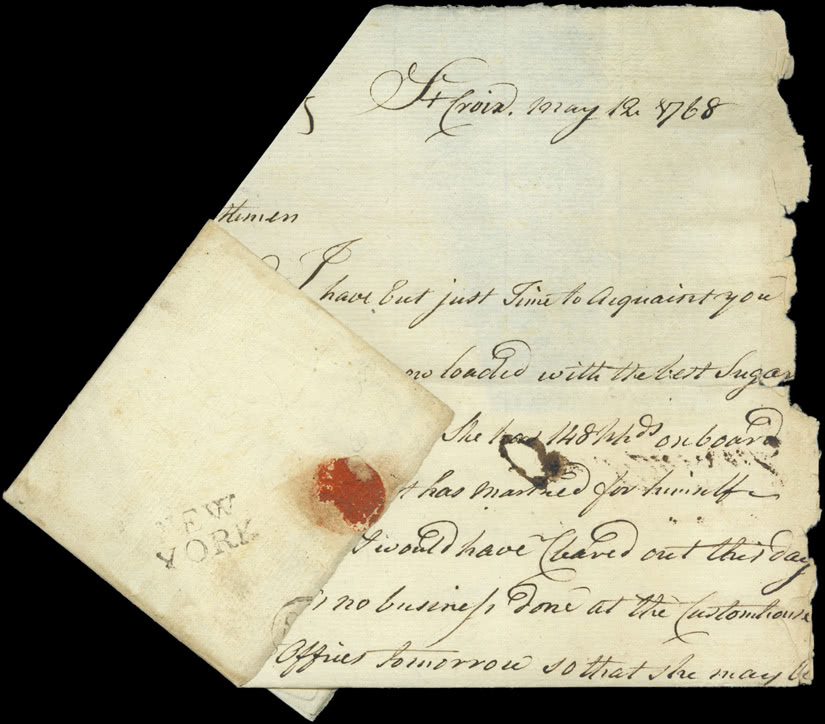 St Croix. May 12 1768
tlemen
I have but just Time to Acquaint you
loaded with the best Sugar
She has 148 hhds on board
has marked for himself
I would have Cleared out this day
no business done at the Customhouse
Offices tomorrow so that she may be
NEW
YORK